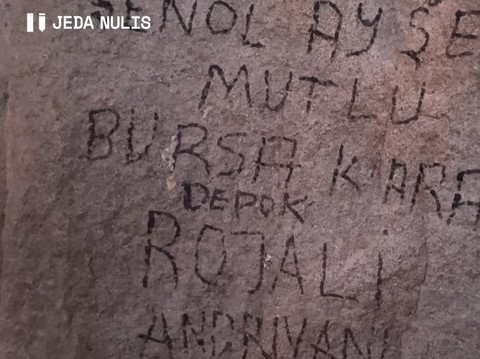 JEDA NULIS
ŞENOL AYŞE
MUTLU
BURSA KARA
DEPOK
ROJALI
ANDRIYANI